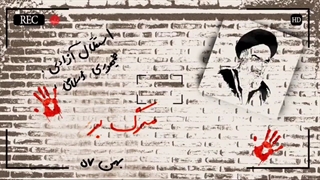 REC
HD
استقلال آزادی
جمهوری اسلامی
مرگ بر
بهمن ۵۷